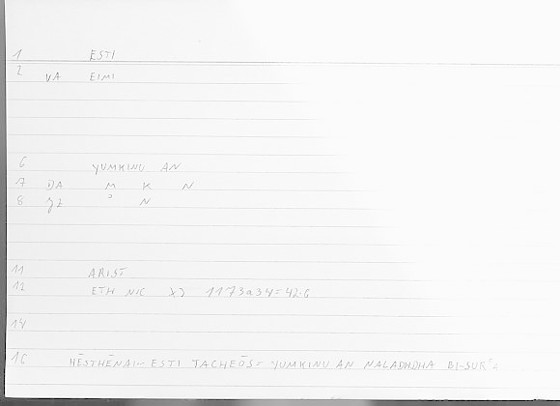 1 ESTI
2 YA EIMI
6 YUMKINU AN
7 DA M K N
8 N
11 ARIST
12 ETH NIC X3 1173a34=42.6
14
16 HĒSTHĒNAI ESTI TACHEŌS= YUMKINU AN NALADHDHA BI-SURʿA